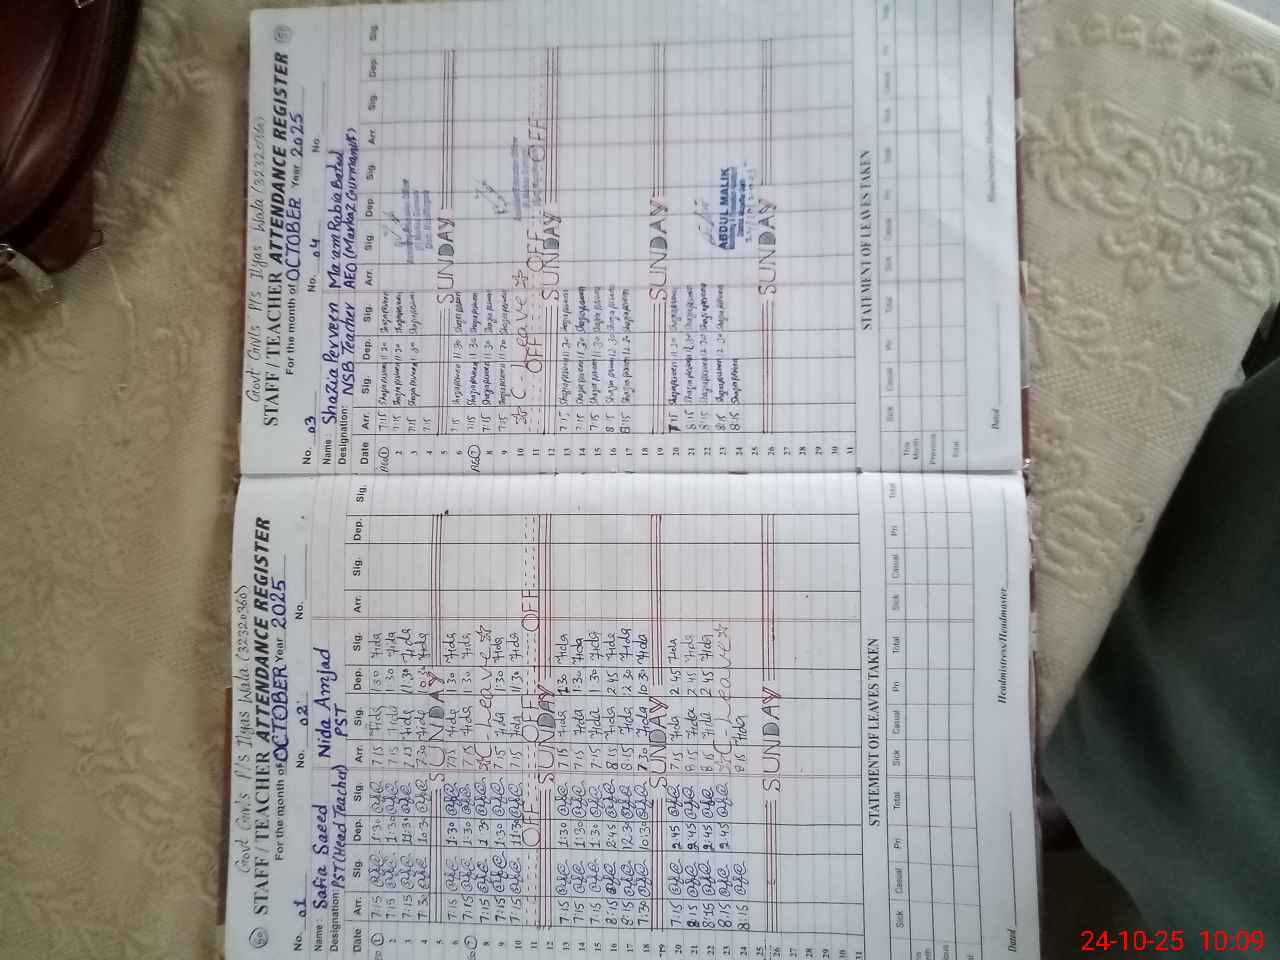 50
Govt Girls P/s Ilyas Wala (32320360)
STAFF / TEACHER ATTENDANCE REGISTER
For the month of OCTOBER Year 2025
No. 01 No. 02 No.
Name: Safia Saeed Nida Amjad
Designation: PST (Head Teacher) PST
Date Arr. Sig. Dep. Sig. Arr. Sig. Dep. Sig. Arr. Sig. Dep. Sig.
1 7:15 1:30 7:15 Nida 1:30 Nida
2 7:15 1:30 7:15 Nida 1:30 Nida
3 7:15 11:30 7:15 Nida 11:30 Nida
4 7:30 10:30 7:30 Nida 10:30 Nida
5 SUNDAY
6 7:15 1:30 7:15 Nida 1:30 Nida
7 7:15 1:30 7:15 Nida 1:30 Nida
8 7:15 1:30 C-Leave
9 7:15 1:30 7:15 Nida 1:30 Nida
10 7:15 11:30 7:15 Nida 11:30 Nida
11 OFF OFF OFF
12 SUNDAY
13 7:15 1:30 7:15 Nida 1:30 Nida
14 7:15 1:30 7:15 Nida 1:30 Nida
15 7:15 1:30 7:15 Nida 1:30 Nida
16 8:15 2:45 8:15 Nida 2:45 Nida
17 8:15 12:30 8:15 Nida 12:30 Nida
18 7:30 10:30 7:30 Nida 10:30 Nida
19 SUNDAY
20 7:15 2:45 7:15 Nida 2:45 Nida
21 8:15 2:45 8:15 Nida 2:45 Nida
22 8:15 2:45 8:15 Nida 2:45 Nida
23 8:15 2:45 C-Leave
24 8:15 8:15 Nida
25
26 SUNDAY
27
28
29
30
31
STATEMENT OF LEAVES TAKEN
Sick Casual Pri Total Sick Casual Pri Total Sick Casual Pri Total
Dated Headmistress/Headmaster
51
Govt Girls P/s Ilyas Wala (32320360)
STAFF / TEACHER ATTENDANCE REGISTER
For the month of OCTOBER Year 2025
No. 03 No. 04 No.
Name: Shazia Perveen Ma'am Rabia Batul
Designation: NSB Teacher AEO (Markaz Gurmani)
Date Arr. Sig. Dep. Sig. Arr. Sig. Dep. Sig. Arr. Sig. Dep. Sig.
1 7:15 Shazia Perveen 11:30 Shazia Perveen
2 7:15 Shazia Perveen 11:30 Shazia Perveen
3 7:15 Shazia Perveen 11:30 Shazia Perveen
4 7:15
5 SUNDAY
6 7:15 Shazia Perveen 11:30 Shazia Perveen
7 7:15 Shazia Perveen 11:30 Shazia Perveen
8 7:15 Shazia Perveen 11:30 Shazia Perveen
9 7:15 Shazia Perveen 11:30 Shazia Perveen
10 C-Leave
11 OFF OFF OFF
12 SUNDAY
13 7:15 Shazia Perveen 11:30 Shazia Perveen
14 7:15 Shazia Perveen 11:30 Shazia Perveen
15 7:15 Shazia Perveen 11:30 Shazia Perveen
16 8:15 Shazia Perveen 12:30 Shazia Perveen
17 8:15 Shazia Perveen 12:30 Shazia Perveen
18
19 SUNDAY
20 7:15 Shazia Perveen 11:30 Shazia Perveen
21 8:15 Shazia Perveen 12:30 Shazia Perveen
22 8:15 Shazia Perveen 12:30 Shazia Perveen
23 8:15 Shazia Perveen 12:30 Shazia Perveen
24 8:15 Shazia Perveen
ABDUL MALIK
25
26 SUNDAY
27
28
29
30
31
STATEMENT OF LEAVES TAKEN
Sick Casual Pri Total Sick Casual Pri Total Sick Casual Pri Total
This Month
Previous
Total
Dated Headmistress/Headmaster
24-10-25 10:09